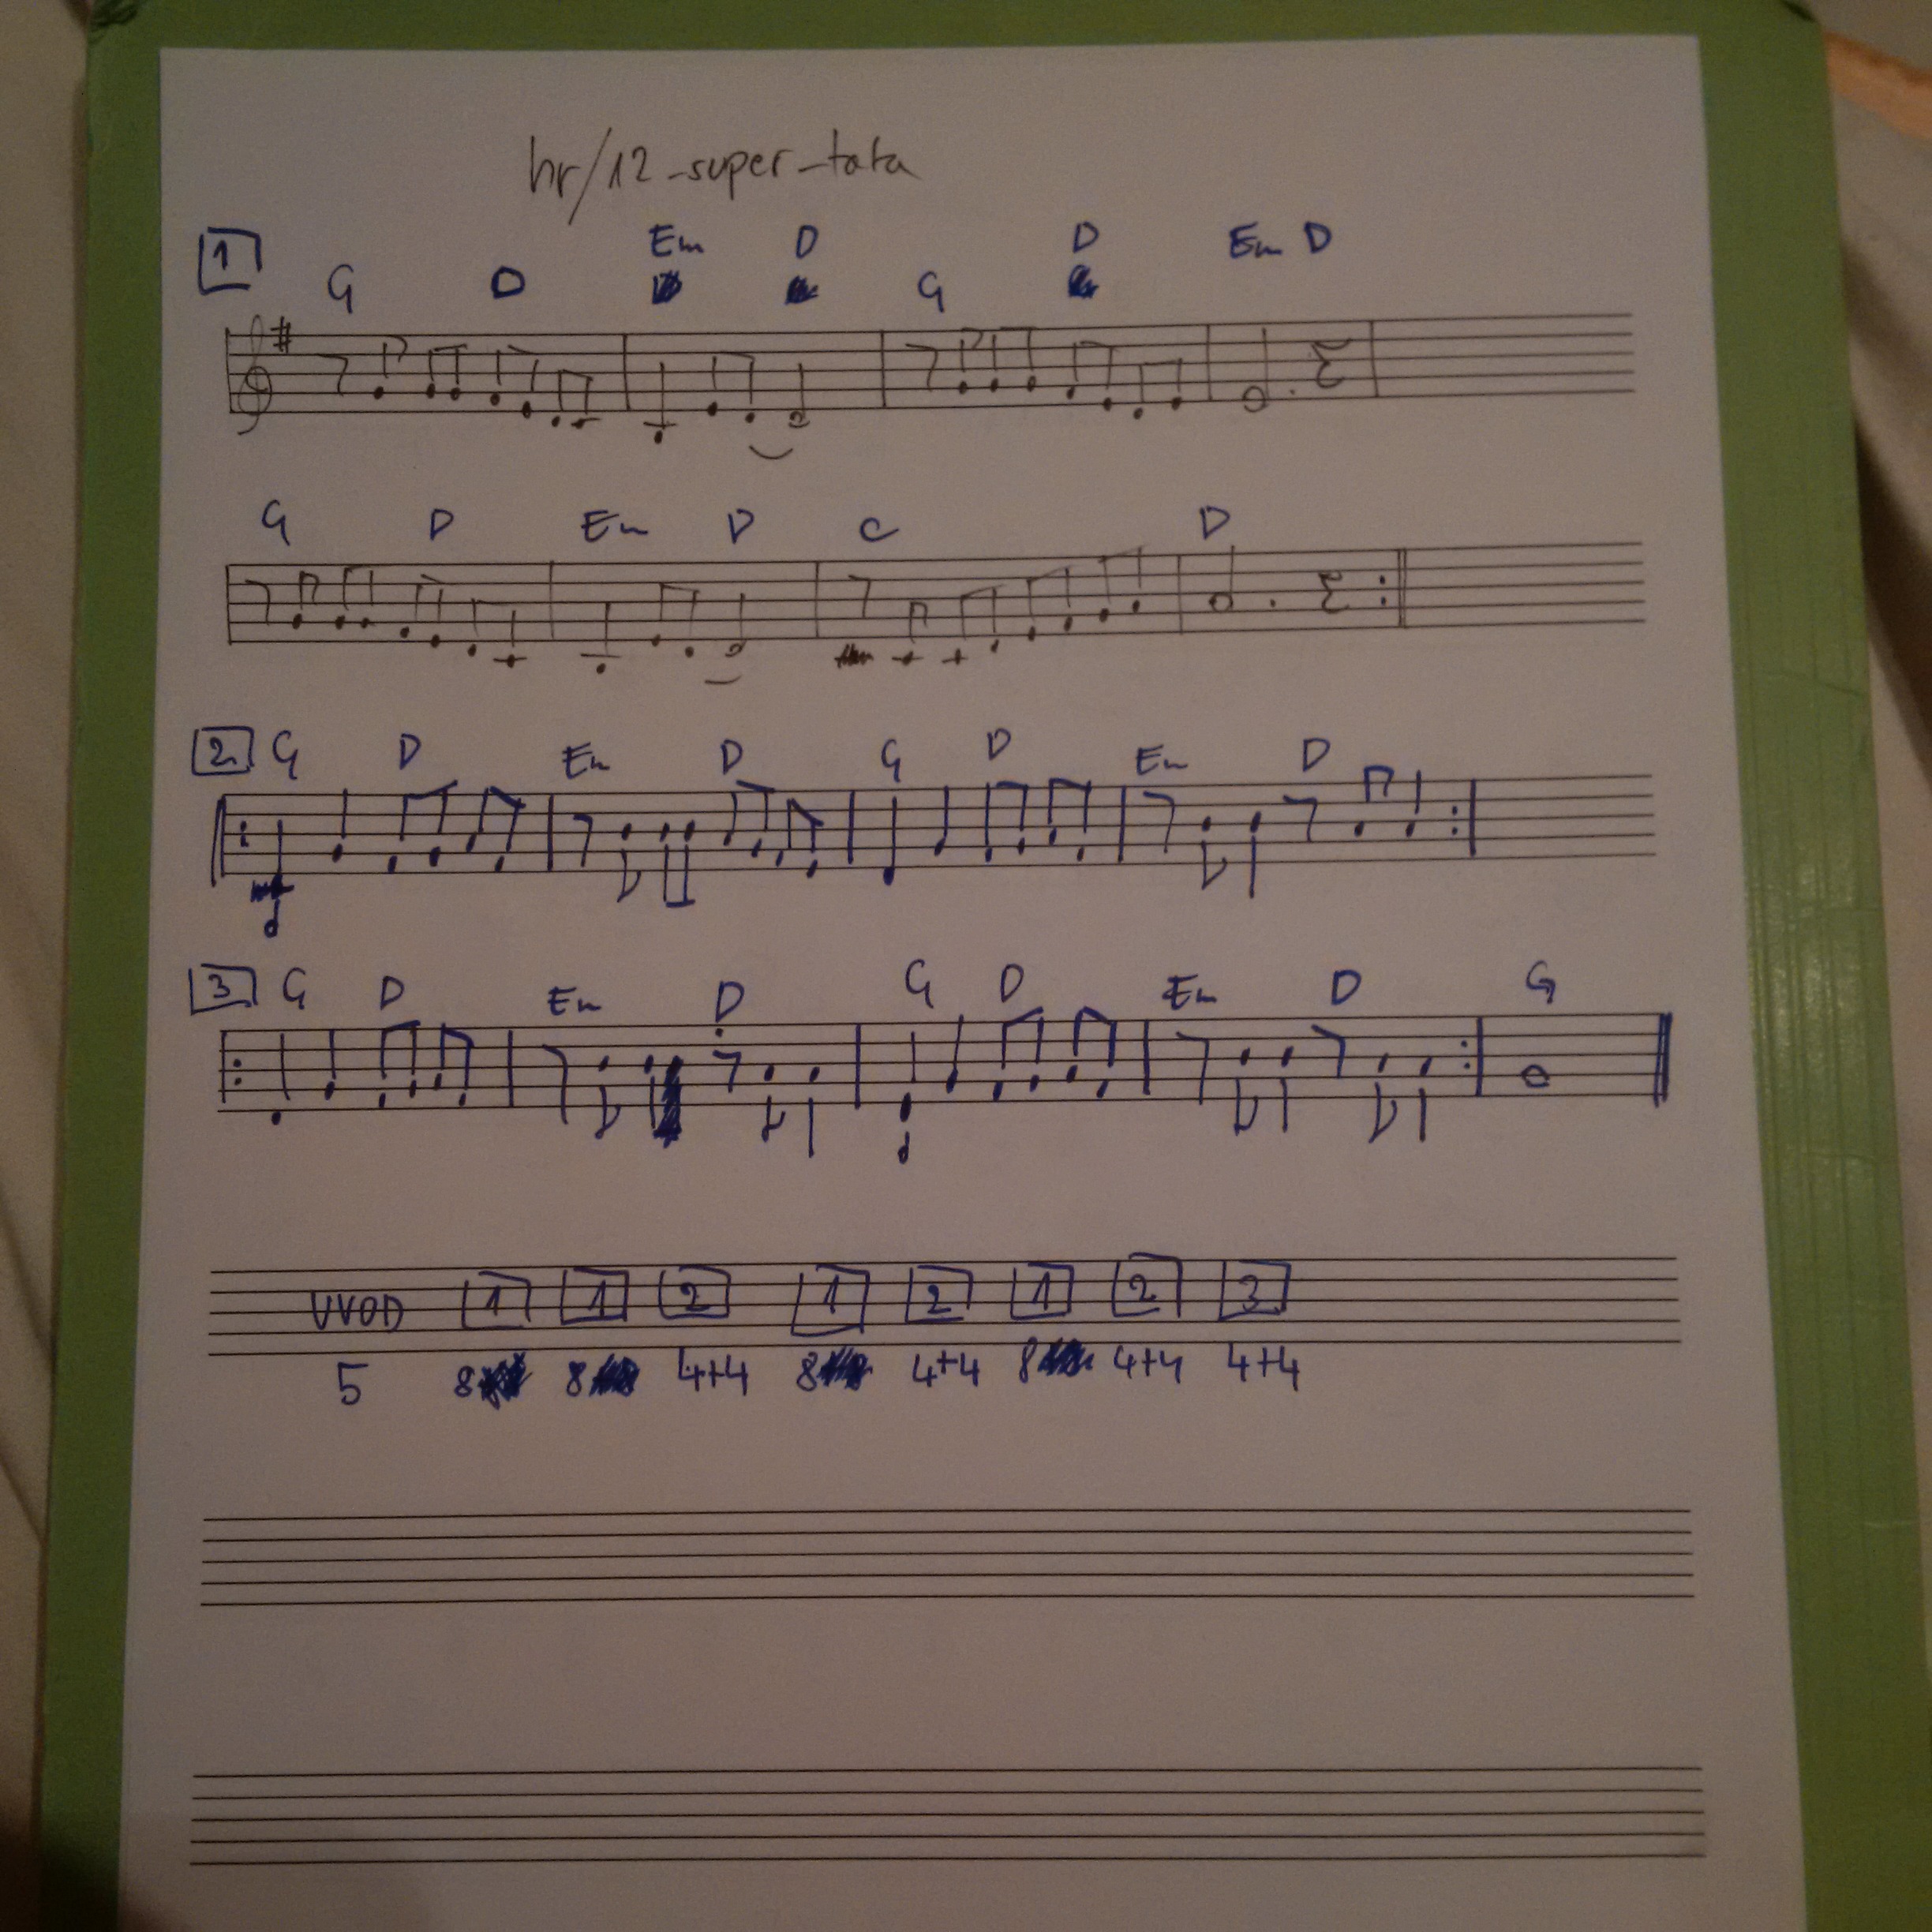 hr/12_super_tata
1
Em D D Em D
G D G
G D Em D C D
2 G D Em D G D Em D
3 G D Em D G D Em D G
UVOD 1 1 2 1 2 1 2 3
5 8 8 4+4 8 4+4 8 4+4 4+4